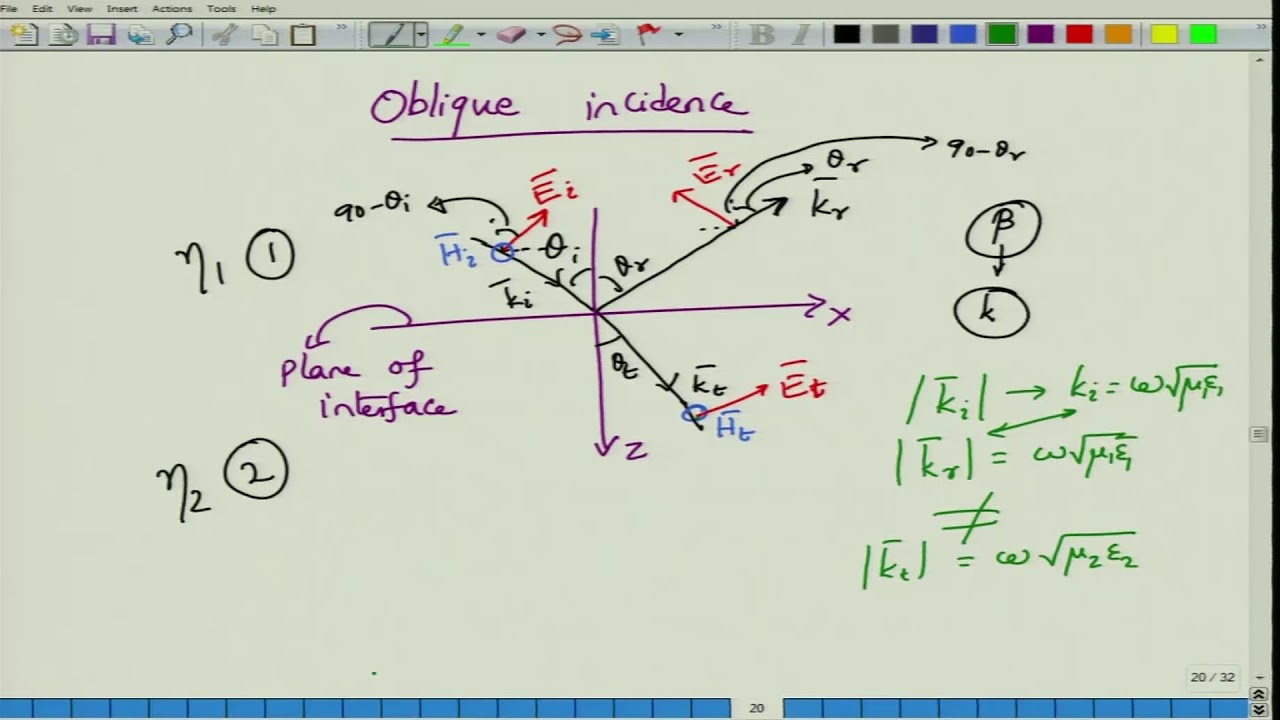 File Edit View Insert Actions Tools Help
B I
Oblique incidence
90-θi
Ēi
Ēr
θr
90-θr
k̄r
η1 ①
H̄i
θi
θr
k̄i
β
k
x
plane of
interface
θt
k̄t
Ēt
H̄t
z
η2 ②
|k̄i| → ki = ω√μ1ε1
|k̄r| = ω√μ1ε1
≠
|k̄t| = ω√μ2ε2
20 / 32
20